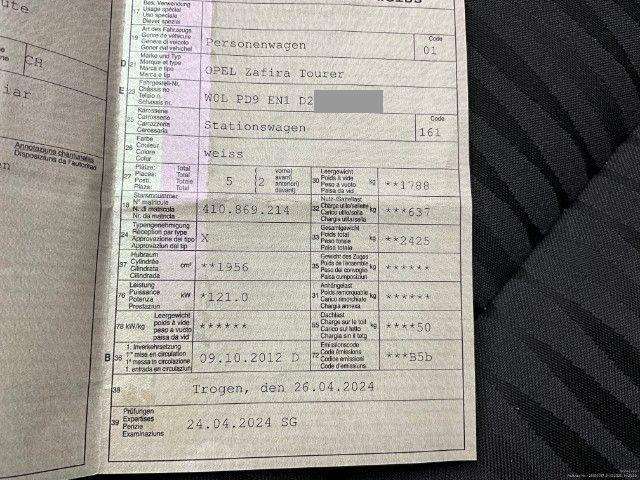 17 Bes. Verwendung
Usage spécial
Uso speciale
Diever spezial
19 Art des Fahrzeugs Code
Genre de véhicule Personenwagen 01
Genere di veicolo
Gener dal vehichel
D 21 Marke und Typ
Marque et type OPEL Zafira Tourer
Marca e tipo
Marca e tip
E 23 Fahrgestell-Nr.
Châssis no W0L PD9 EN1 D2
Telaio n.
Schassis nr.
25 Karosserie Code
Carrosserie Stationswagen 161
Carrozzeria
Carossaria
26 Farbe
Couleur weiss
Colore
Colur
27 Plätze: Total vorne) 30 Leergewicht
Places: Total 5 (2 avant) Poids à vide kg **1788
Posti: Totale anteriori) Peso a vuoto
Plaza: Total davant) Paisa da vid
18 Stammnummer 32 Nutz-/Sattellast
N° matricule 410.869.214 Charge utile/sellette kg ***637
N. di matricola Carico utile/sella
Nr. da matricla Chargia utila/sella
24 Typengenehmigung 33 Gesamtgewicht
Réception par type X Poids total kg **2425
Approvazione del tipo Peso totale
Approvaziun del tip Paisa totala
37 Hubraum 35 Gewicht des Zuges
Cylindrée cm³ **1956 Poids de l'ensemble kg ******
Cilindrata Peso del convoglio
Cilindrada Paisa cumposiziun
76 Leistung 31 Anhängelast
Puissance kW *121.0 Poids remorquable kg ******
Potenza Carico rimorchiato
Prestaziun Chargia annexa
78 kW/kg Leergewicht 55 Dachlast
poids à vide ****** Charge sur le toit kg ****50
peso a vuoto Carico sul tetto
paisa da vid Chargia sin il tetg
B 36 1. Inverkehrsetzung 72 Emissionscode
1re mise en circulation 09.10.2012 D Code émissions ***B5b
1a messa in circolazione Codice emissioni
1. entrada en circulaziun Code d'emissiuns
38 Trogen, den 26.04.2024
39 Prüfungen
Expertises 24.04.2024 SG
Perizie
Examinaziuns
CH
Annotaziuns chantunalas
Disposiziuns da l'autoritad